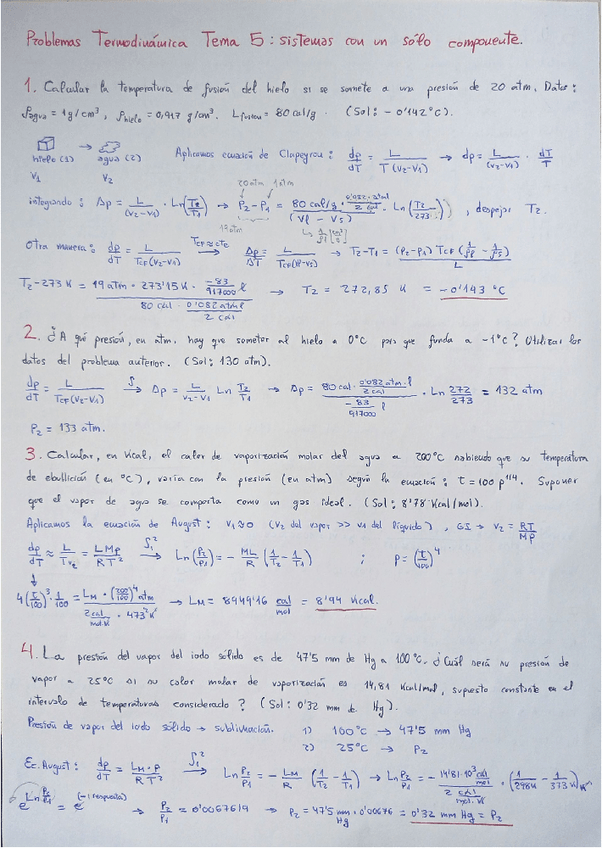 Problemas Termodinámica Tema 5: sistemas con un sólo componente.
1. Calcular la temperatura de fusión del hielo si se somete a una presión de 20 atm. Datos:
ρagua = 1g/cm³, ρhielo = 0,917 g/cm³. Lfusion = 80 cal/g. (Sol: -0'142°C).
hielo (1) → agua (2) Aplicamos ecuación de Clapeyron: dp/dT = L/T(V2-V1) → dp = L/(V2-V1) · dT/T
V1 V2
20 atm 1 atm
integrando: Δp = L/(V2-V1) · Ln(T2/T1) → P2-P1 = 80 cal/g · 0'082 atm l/2 cal/(Vl - Vs) · Ln(T2/273), despejar T2.
19 atm
Otra manera: dp/dT = L/TCF(V2-V1) TCF≈cTe → Δp/ΔT = L/TCF(Vl-Vs) → T2-T1 = (P2-P1) TCF (1/ρl - 1/ρs)/L
T2-273K = 19 atm · 273'15 K · -83/917000 l/80 cal · 0'082 atm l/2 cal → T2 = 272,85 K = -0'143 °C
2. ¿A qué presión, en atm. hay que someter al hielo a 0°C para que funda a -1°C? Utilizar los
datos del problema anterior. (Sol: 130 atm).
dp/dT = L/TCF(V2-V1) ∫→ Δp = L/V2-V1 Ln T2/T1 → Δp = 80 cal · 0'082 atm·l/2 cal/-83/917000 l · Ln 272/273 = 132 atm
P2 = 133 atm.
3. Calcular, en Kcal, el calor de vaporización molar del agua a 200°C sabiendo que su temperatura
de ebullición (en °C), varía con la presión (en atm) según la ecuación: t = 100 p^1/4. Suponer
que el vapor de agua se comporta como un gas ideal. (Sol: 8'78 Kcal/mol).
Aplicamos la ecuación de August: V1≈0 (V2 del vapor >> V1 del líquido), GI → V2 = RT/Mp
dp/dT ≈ L/TV2 = LMp/RT² ∫₁² → Ln(P2/P1) = - ML/R (1/T2 - 1/T1) ; P = (t/100)⁴
4(t/100)³ · 1/100 = LM · (200/100)⁴ atm/2 cal/mol·K · 473² K² → LM = 8949'16 cal/mol = 8'94 Kcal.
4. La presión del vapor del iodo sólido es de 47'5 mm de Hg a 100°C. ¿Cuál será su presión de
vapor a 25°C si su calor molar de vaporización es 14,81 Kcal/mol, supuesto constante en el
intervalo de temperaturas considerado? (Sol: 0'32 mm de Hg).
Presión de vapor del iodo sólido → sublimación. 1) 100°C → 47'5 mm Hg
2) 25°C → P2
Ec. August: dp/dT = LM·P/RT² ∫₁² → Ln P2/P1 = - LM/R (1/T2 - 1/T1) → Ln P2/P1 = - 14'81·10³ cal/mol/2 cal/mol·K · (1/298K - 1/373K)
e^Ln P2/P1 = e^(-1 respuesta) → P2/P1 = 0'0067619 → P2 = 47'5 mm Hg · 0'00676 = 0'32 mm Hg = P2